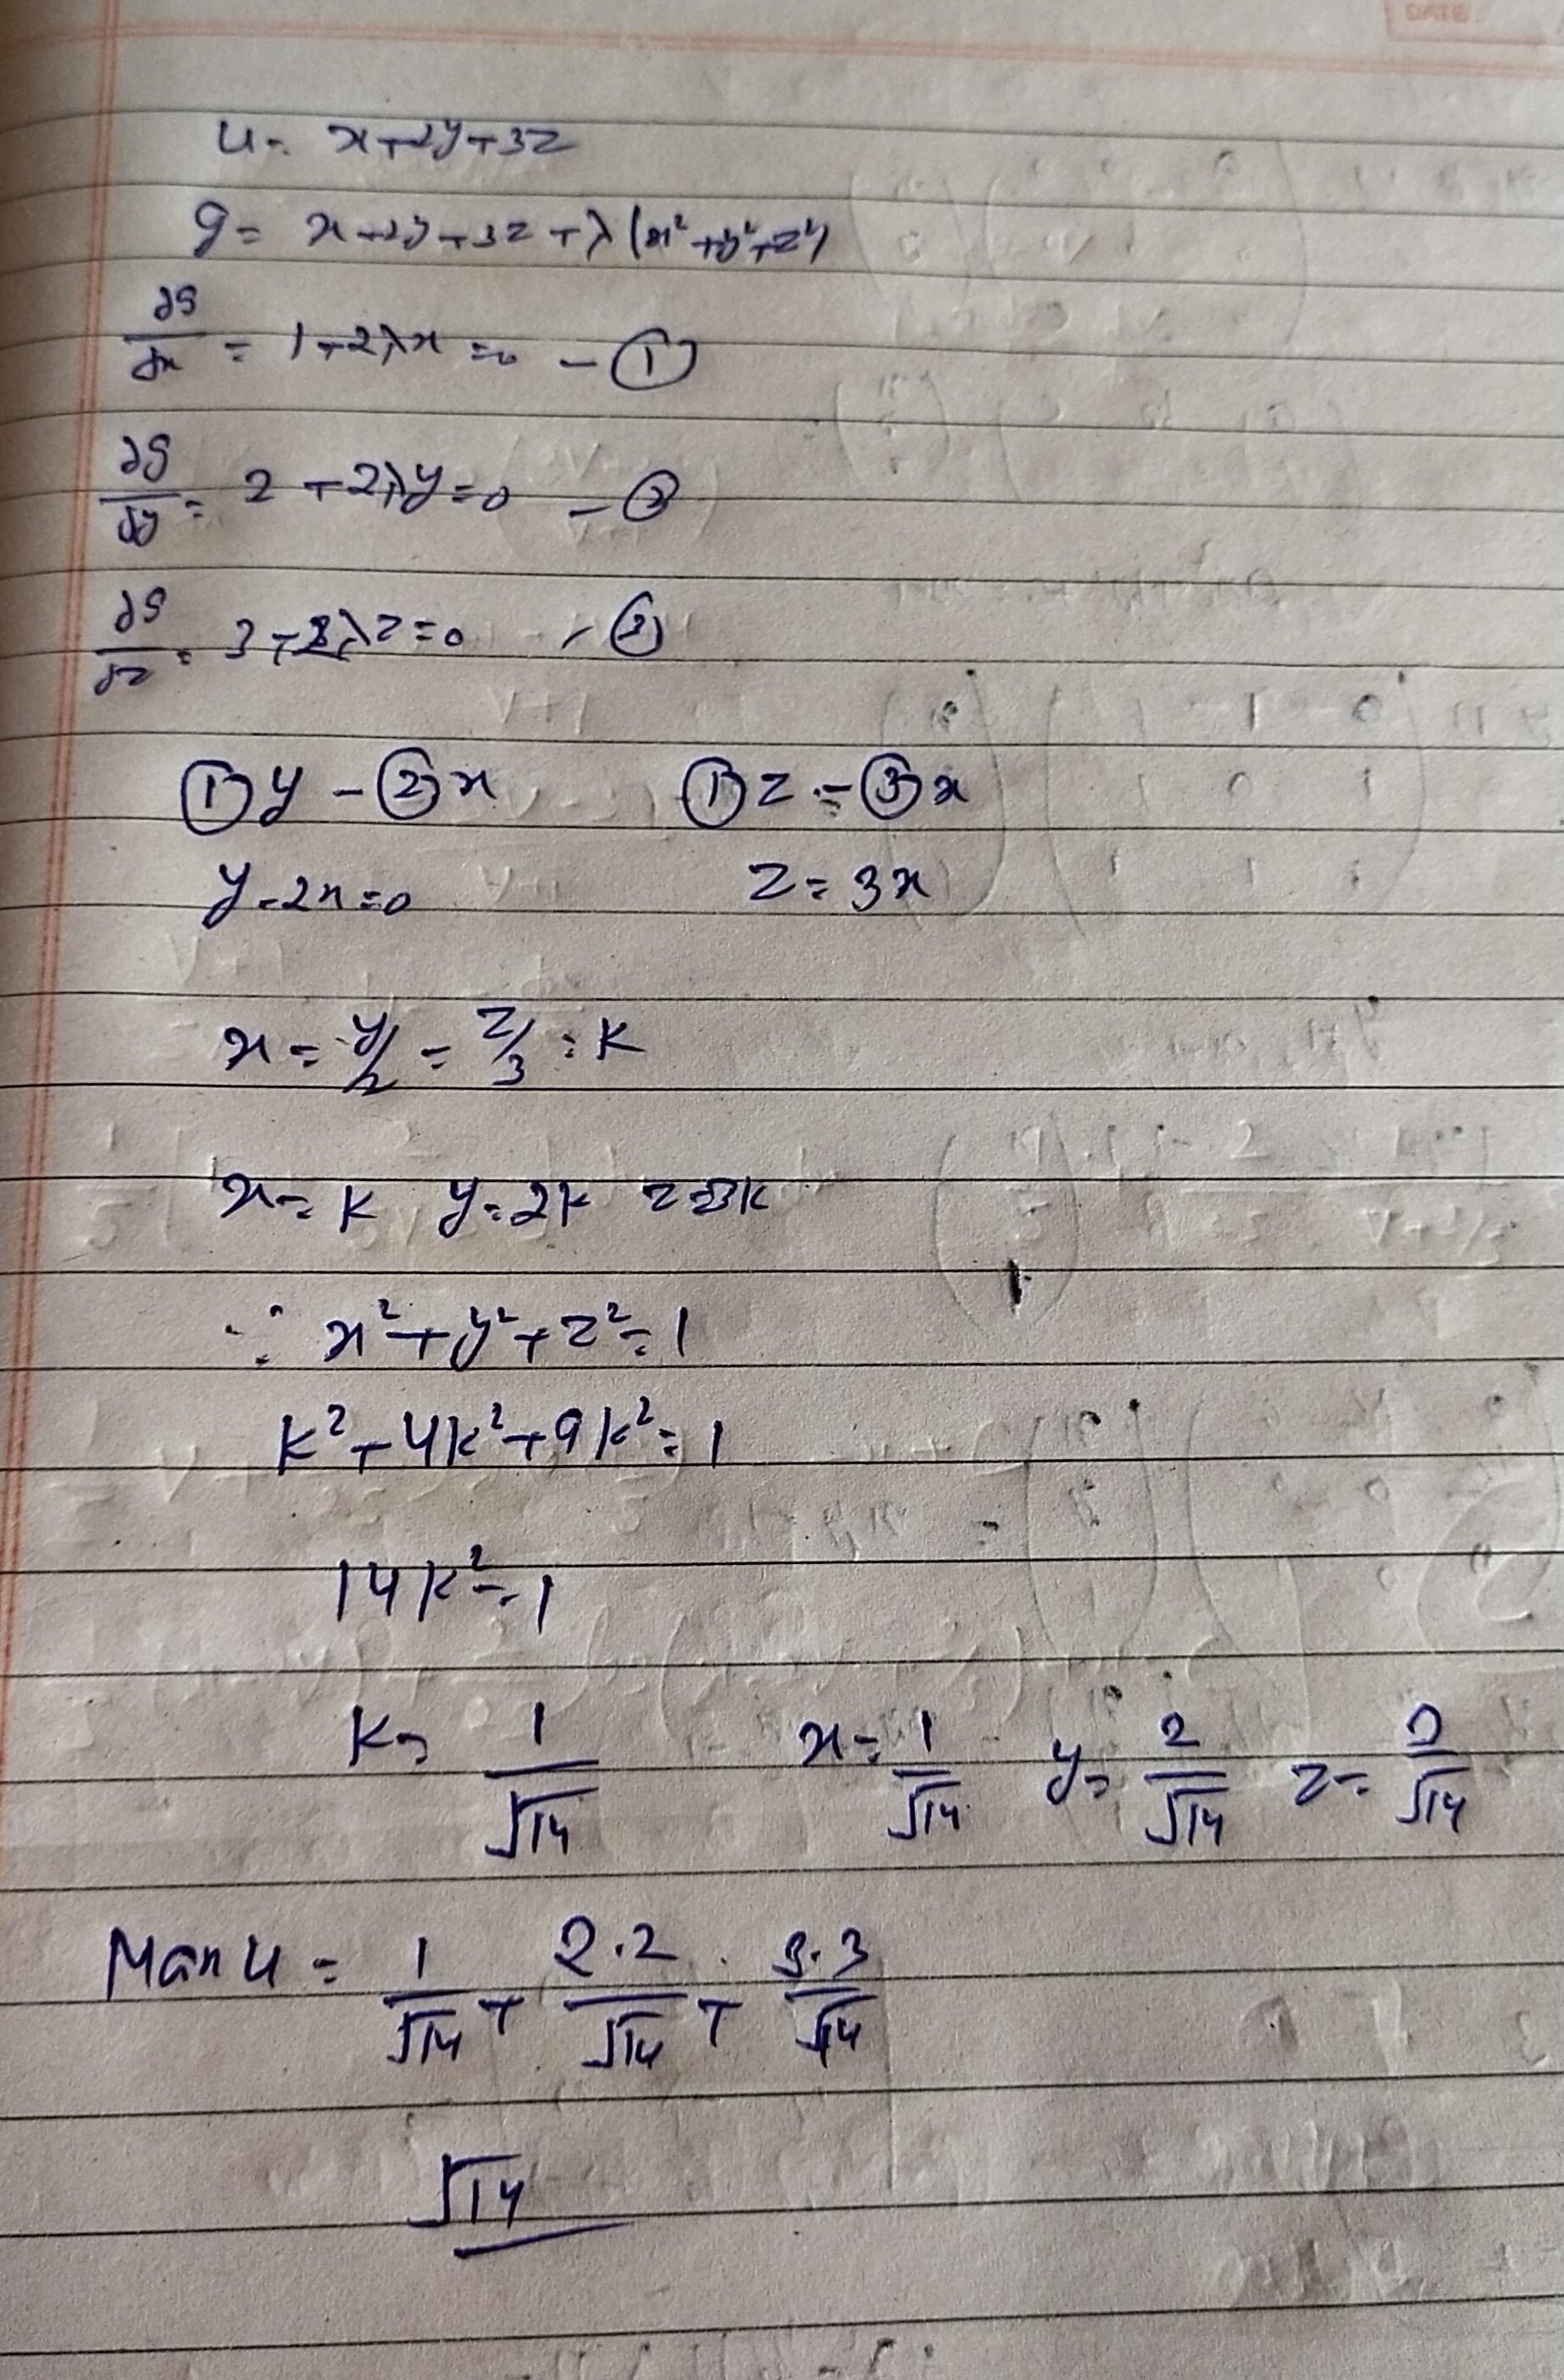 DATE:
u = x+2y+3z
g = x+2y+3z+λ(x²+y²+z²)
∂g/∂x = 1+2λx = 0 - ①
∂g/∂y = 2+2λy = 0 - ②
∂g/∂z = 3+2λz = 0 - ③
①y - ②x ①z - ③x
y-2x=0 z=3x
x = y/2 = z/3 = k
x = k y = 2k z=3k
∵ x²+y²+z² = 1
k²+4k²+9k² = 1
14k² = 1
k = 1/√14 x = 1/√14 y = 2/√14 z = 3/√14
Max u = 1/√14 + 2·2/√14 + 3·3/√14
√14